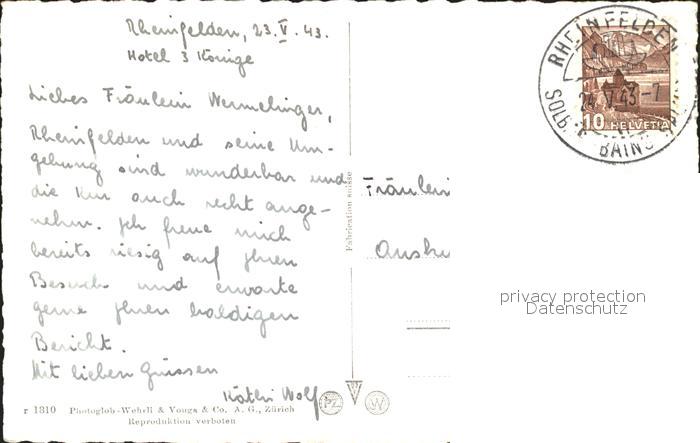 Rheinfelden, 23. V. 43.
Hotel 3 Könige
Liebes Fräulein Wermelinger,
Rheinfelden und seine Um-
gebung sind wunderbar und
die Kur auch recht ange-
nehm. Ich freue mich
bereits riesig auf Ihren
Besuch und erwarte
gerne Ihren baldigen
Bericht.
Mit lieben Grüssen
Käthi Wolf
r 1310 Photoglob-Wehrli & Vouga & Co. A. G., Zürich
Reproduktion verboten
Fabrication suisse
Fräulein
RHEINFELDEN
24. V. 43 - 7
BAINS
10 HELVETIA
PZ
W
privacy protection
Datenschutz